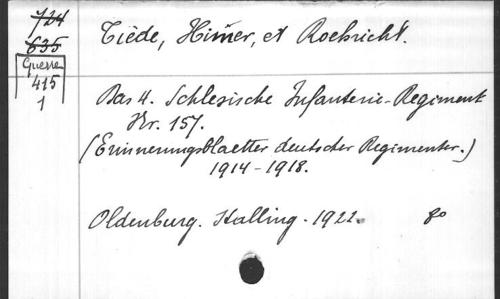 724
635
Guerre
415
1
Tiède, Himer, et Roebricht.
Das 4. Schlesische Infanterie-Regiment
Nr. 157.
(Erinnerungsblaetter deutscher Regimenter.)
1914-1918.
Oldenburg. Stalling. 1922. 8o